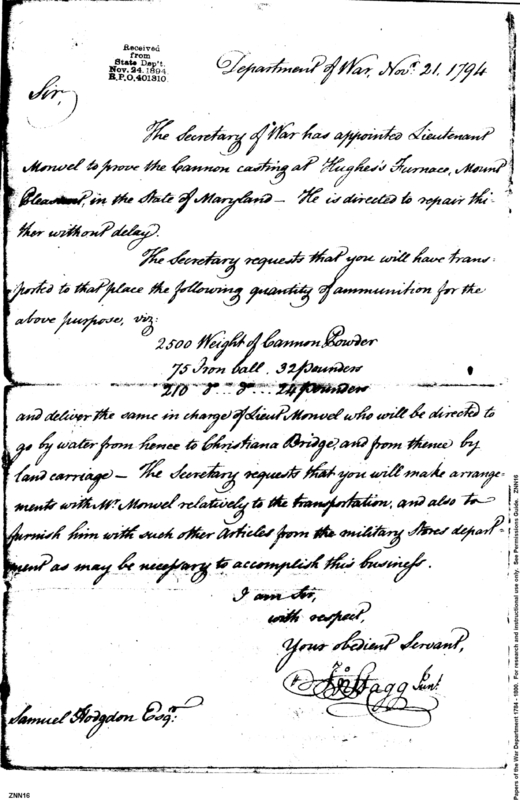 Received
from
State Dep't.
Nov. 24. 1894
R.P.O. 401310
Department of War, Novr. 21, 1794
Sir,
The Secretary of War has appointed Lieutenant
Monvel to prove the Cannon casting at Hughes's Furnace, Mount
Pleasant, in the State of Maryland — He is directed to repair thi-
ther without delay.
The Secretary requests that you will have trans-
ported to that place the following quantity of ammunition for the
above purpose, viz:
2500 Weight of Cannon Powder
75 Iron ball . 32 pounders
210 do .. do ... 24 pounders
and deliver the same in charge of Lieut Monvel who will be directed to
go by water from hence to Christiana Bridge, and from thence by
land carriage — The Secretary requests that you will make arrange-
ments with Mr. Monvel relatively to the transportation, and also to
furnish him with such other Articles from the military Stores depart-
ment as may be necessary to accomplish this business.
I am Sir,
with respect,
Your obedient Servant,
Jno Stagg Junr.
Samuel Hodgdon Esqr.
ZNN16
Papers of the War Department 1784 - 1800. For research and instructional use only. See Permissions Guide. ZNN16